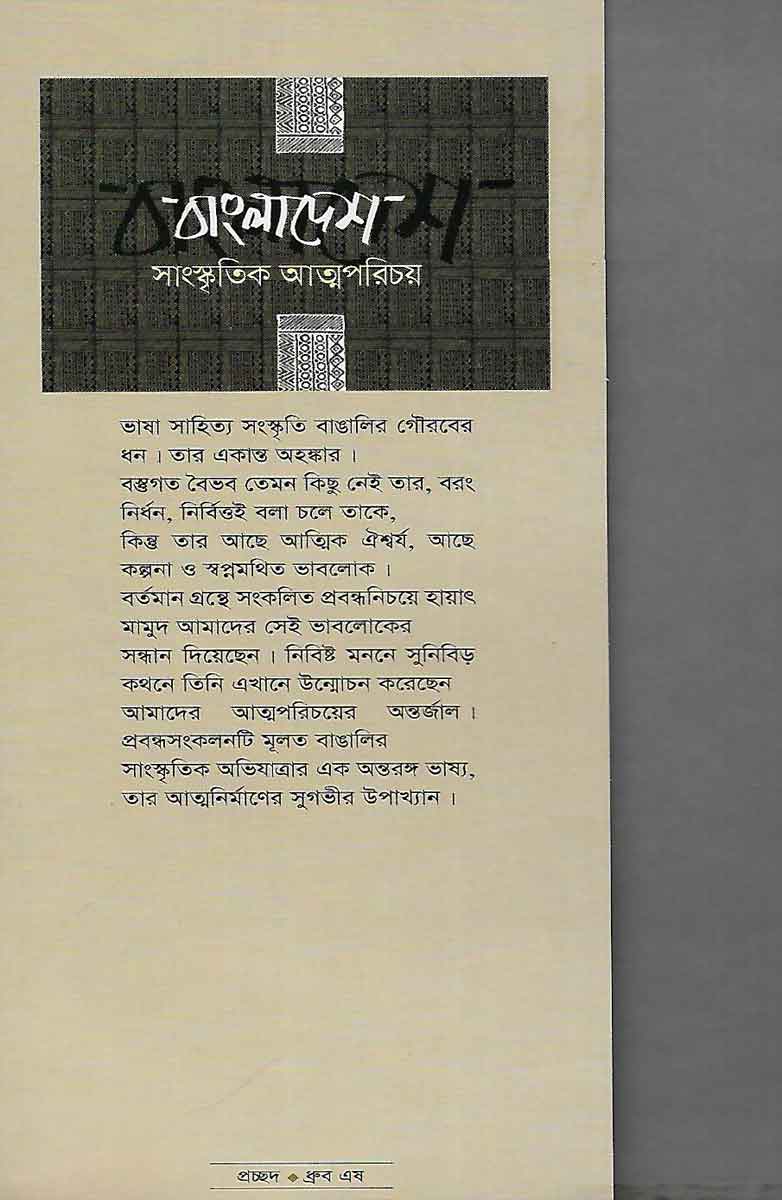 বাংলাদেশ
সাংস্কৃতিক আত্মপরিচয়
ভাষা সাহিত্য সংস্কৃতি বাঙালির গৌরবের
ধন । তার একান্ত অহঙ্কার ।
বস্তুগত বৈভব তেমন কিছু নেই তার, বরং
নির্ধন, নির্বিত্তই বলা চলে তাকে,
কিন্তু তার আছে আত্মিক ঐশ্বর্য, আছে
কল্পনা ও স্বপ্নমথিত ভাবলোক ।
বর্তমান গ্রন্থে সংকলিত প্রবন্ধনিচয়ে হায়াৎ
মামুদ আমাদের সেই ভাবলোকের
সন্ধান দিয়েছেন । নিবিষ্ট মননে সুনিবিড়
কথনে তিনি এখানে উন্মোচন করেছেন
আমাদের আত্মপরিচয়ের অন্তর্জাল ।
প্রবন্ধসংকলনটি মূলত বাঙালির
সাংস্কৃতিক অভিযাত্রার এক অন্তরঙ্গ ভাষ্য,
তার আত্মনির্মাণের সুগভীর উপাখ্যান ।
প্রচ্ছদ ◆ ধ্রুব এষ